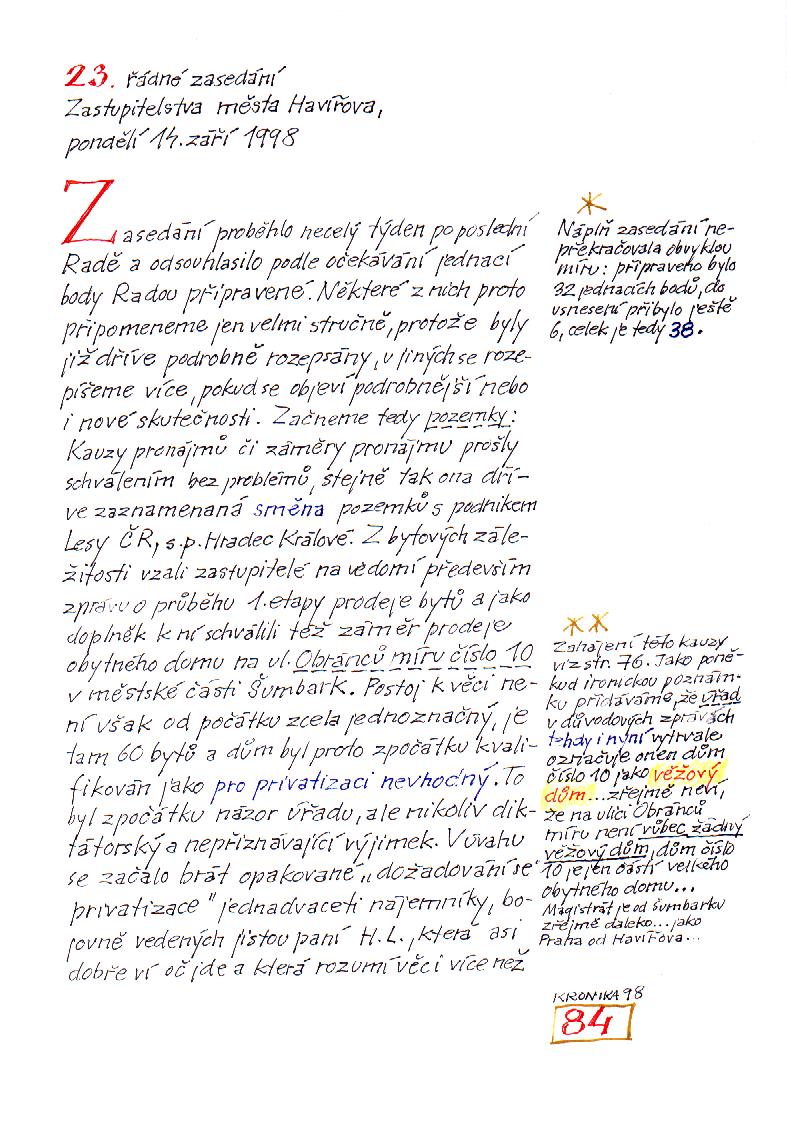 23. řádné zasedání
Zastupitelstva města Havířova,
pondělí 14. září 1998
Zasedání proběhlo necelý týden po poslední
Radě a odsouhlasilo podle očekávání jednací
body Radou připravené. Některé z nich proto
připomeneme jen velmi stručně, protože byly
již dříve podrobně rozepsány, u jiných se roze-
píšeme více, pokud se objeví podrobnější nebo
i nové skutečnosti. Začneme tedy pozemky:
Kauzy pronájmů či záměry pronájmu prošly
schválením bez problémů, stejně tak ona dří-
ve zaznamenaná směna pozemků s podnikem
Lesy ČR, s.p. Hradec Králové. Z bytových zále-
žitostí vzali zastupitelé na vědomí především
zprávu o průběhu 1. etapy prodeje bytů a jako
doplněk k ní schválili též záměr prodeje
obytného domu na ul. Obránců míru číslo 10
v městské části Šumbark. Postoj k věci ne-
ní však od počátku zcela jednoznačný, je
tam 60 bytů a dům byl proto zpočátku kvali-
fikován jako pro privatizaci nevhodný. To
byl zpočátku názor úřadu, ale nikoliv dik-
tátorský a nepřiznávající výjimek. V úvahu
se začalo brát opakované „dožadování se
privatizace" jednadvaceti nájemníky, bo-
jovně vedených jistou paní H.L., která asi
dobře ví oč jde a která rozumí věci více než
*
Náplň zasedání ne-
překračovala obvyklou
míru: připraveno bylo
32 jednacích bodů, do
usnesení přibylo ještě
6, celek je tedy 38.
**
Zahájení této kauzy
viz str. 76. Jako poně-
kud ironickou poznám-
ku přidáváme, že úřad
v důvodových zprávách
tehdy i nyní vytrvale
označuje onen dům
číslo 10 jako věžový
dům... zřejmě neví,
že na ulici Obránců
míru není vůbec žádný
věžový dům, dům číslo
10 je jen částí velkého
obytného domu...
Magistrát je od Šumbarku
zřejmě daleko... jako
Praha od Havířova...
KRONIKA 98
84